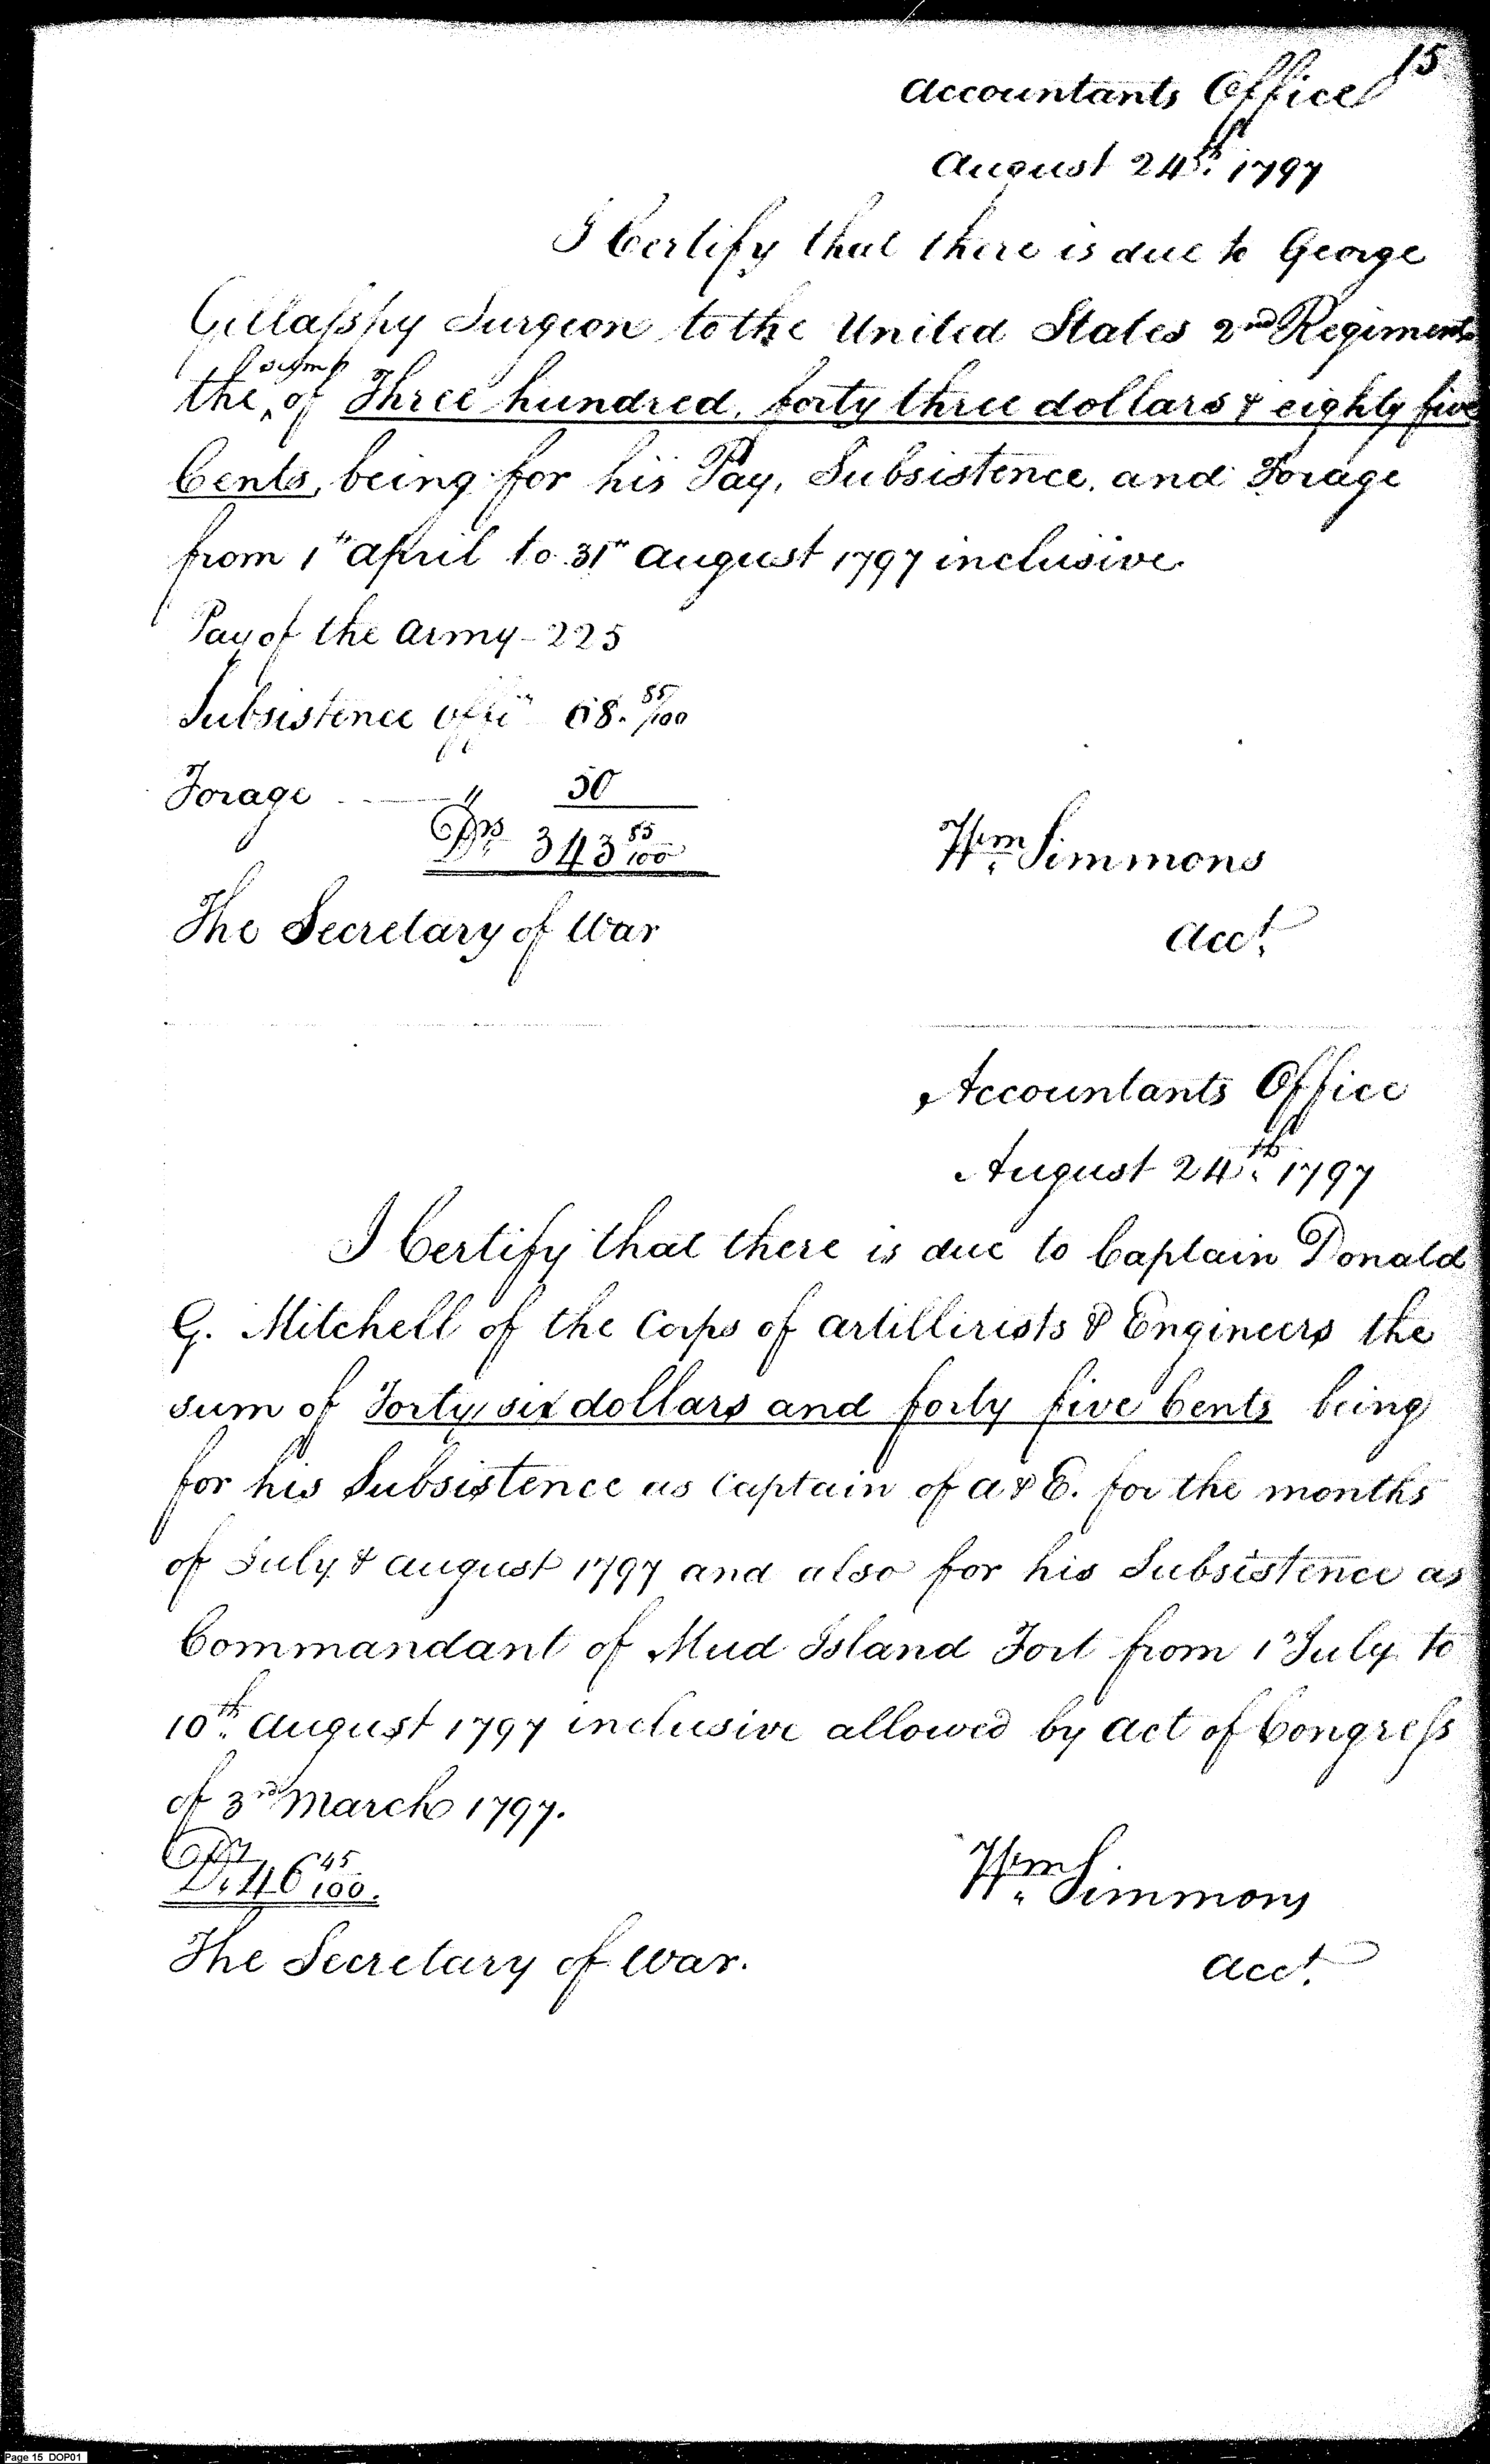 15
Accountants Office
August 24th. 1797
I Certify that there is due to George
Gillaſspy Surgeon to the United States 2nd Regiment
sum
the ^ of Three hundred, forty three dollars & eighty five
Cents, being for his Pay, Subsistence, and Forage
from 1st April to 31st August 1797 inclusive
Pay of the Army - 225
Subsistence offi" 68. 85/100
Forage — " 50
Drs. 343 85/100
Wm. Simmons
The Secretary of War
Acct.
Accountants Office
August 24th. 1797
I Certify that there is due to Captain Donald
G. Mitchell of the Corps of Artillirists & Engineers the
sum of Forty six dollars and forty five Cents being
for his Subsistence as Captain of A & E. for the months
of July & August 1797 and also for his Subsistence as
Commandant of Mud Island Fort from 1st July to
10th. August 1797 inclusive allowed by Act of Congreſs
of 3rd March 1797.
Drs. 46 45/100.
Wm. Simmons
The Secretary of War.
Acct.
Page 15 DOP01